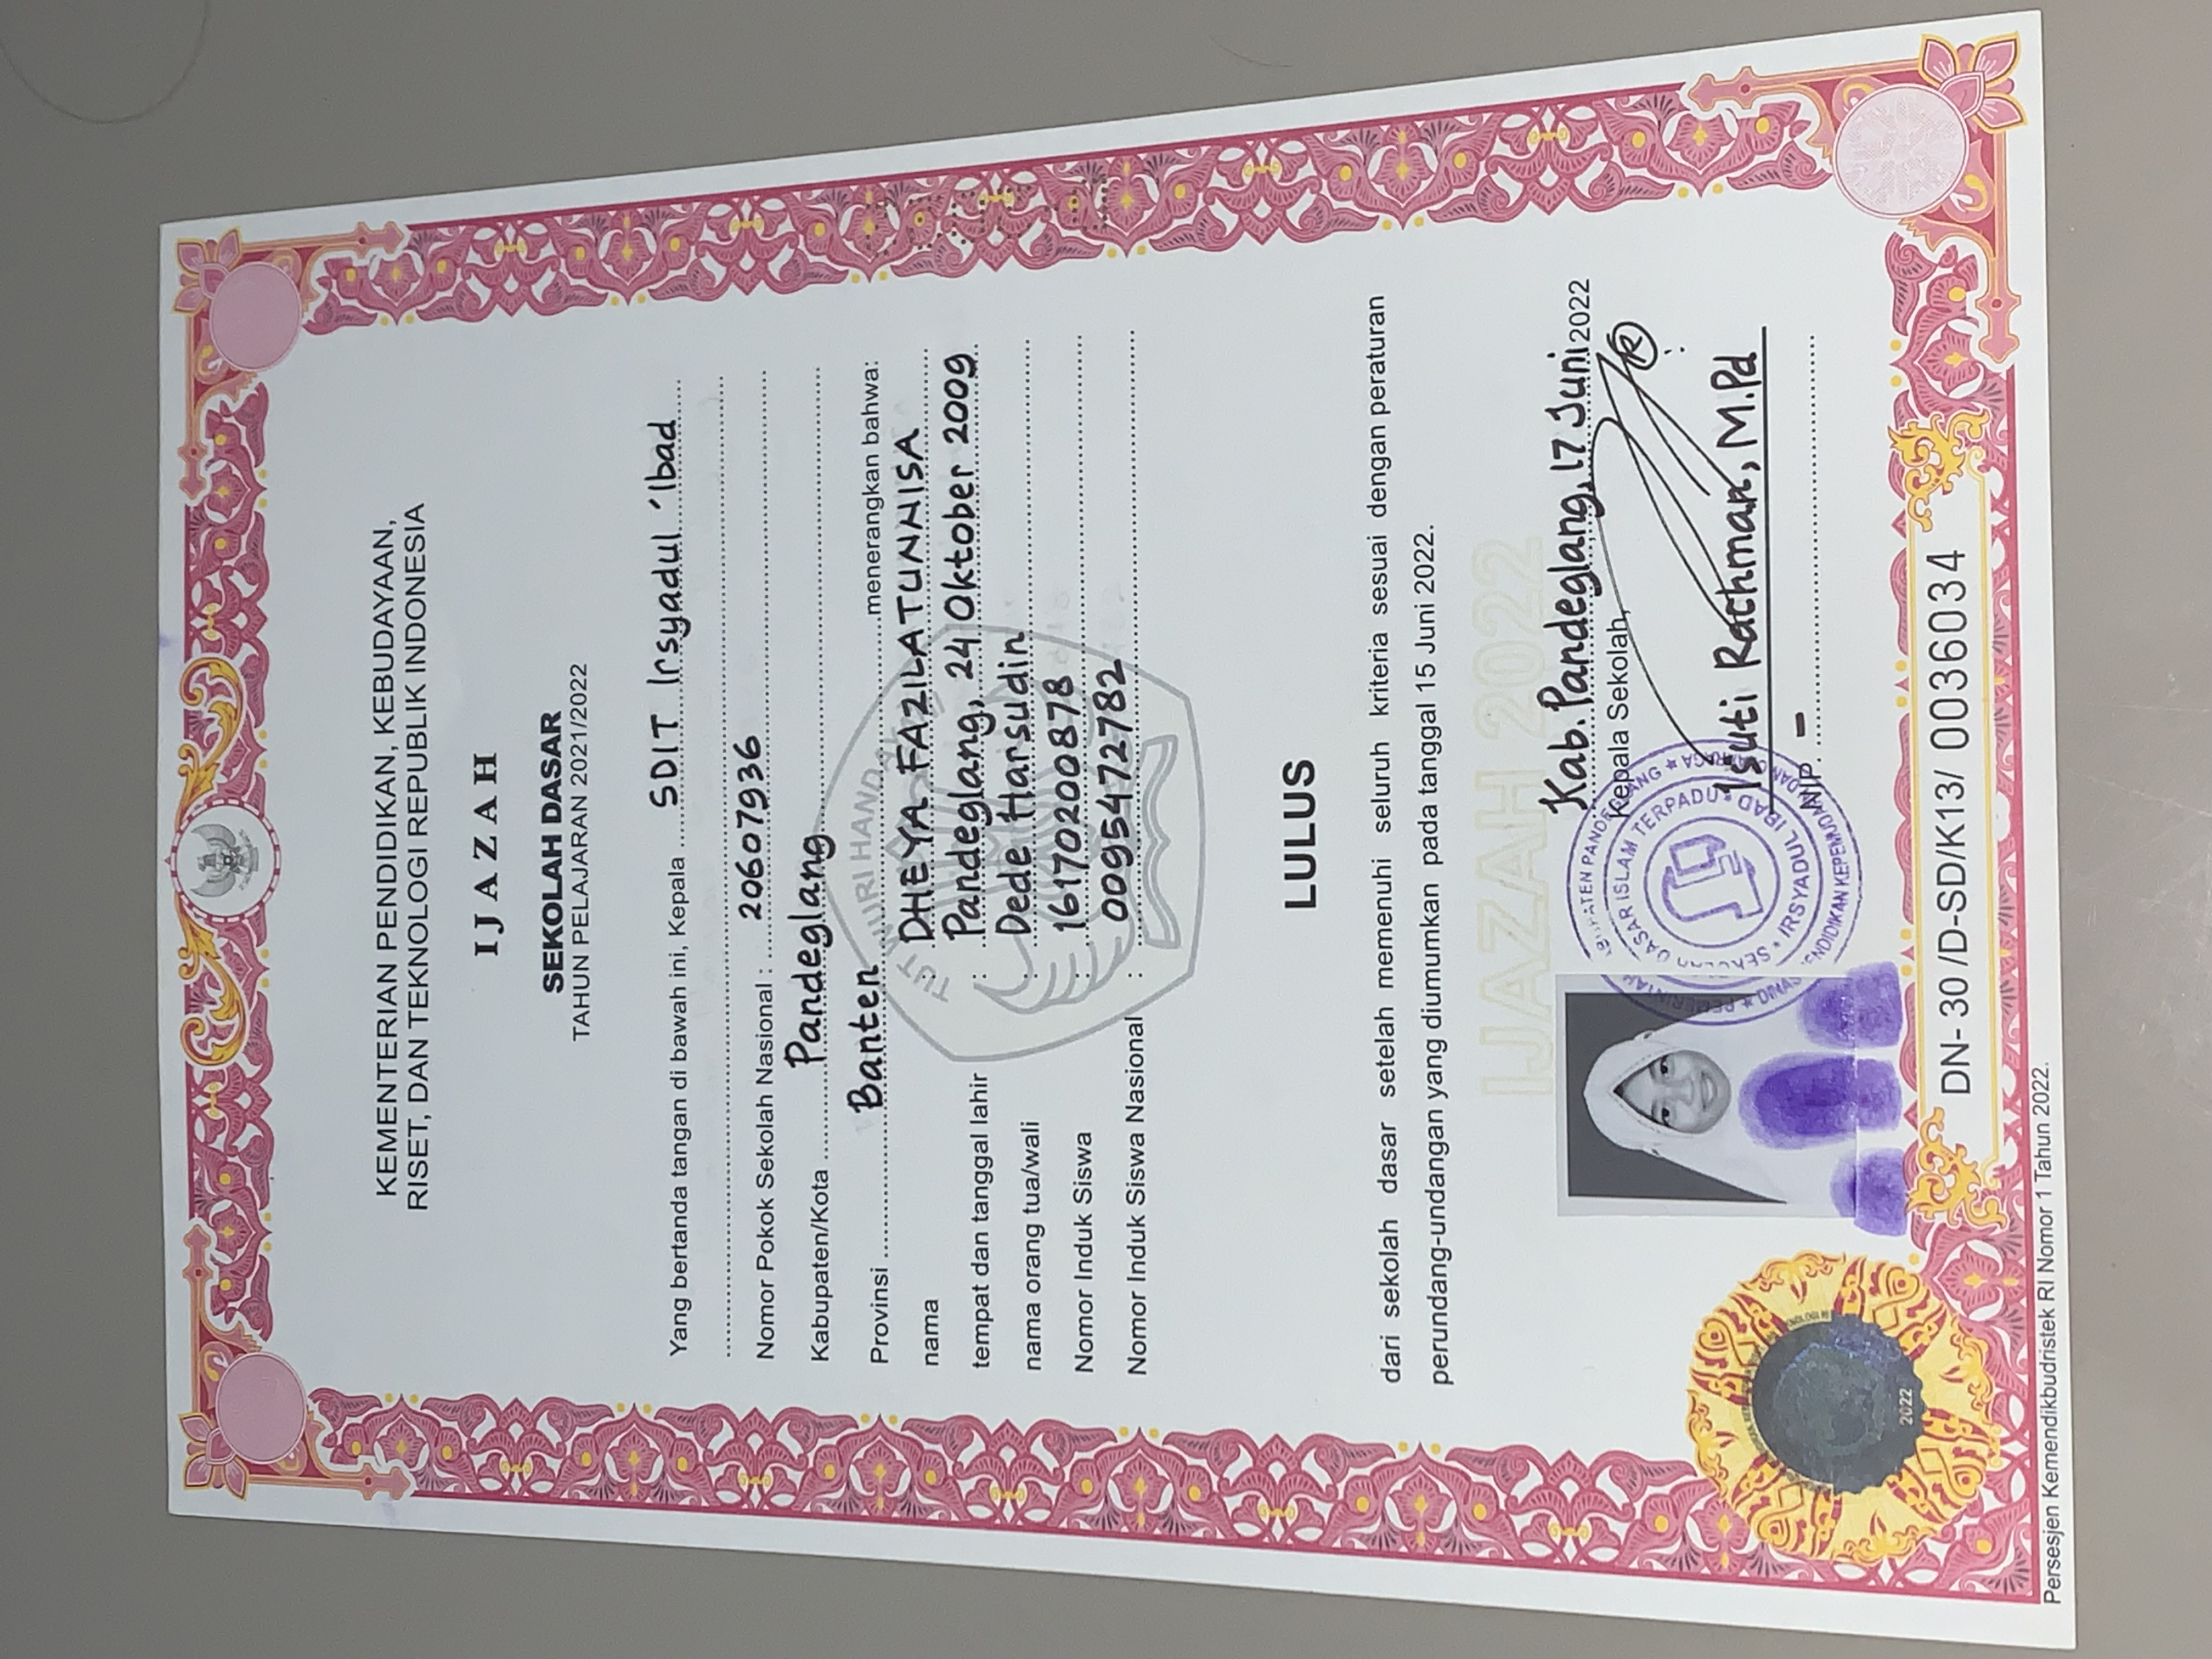 KEMENTERIAN PENDIDIKAN, KEBUDAYAAN,
RISET, DAN TEKNOLOGI REPUBLIK INDONESIA
IJAZAH
SEKOLAH DASAR
TAHUN PELAJARAN 2021/2022
Yang bertanda tangan di bawah ini, Kepala SDIT Irsyadul 'Ibad
Nomor Pokok Sekolah Nasional : 20607936
Kabupaten/Kota Pandeglang
Provinsi Banten menerangkan bahwa:
TUT WURI HANDAYANI
nama : DHEYA FAZILATUNNISA
tempat dan tanggal lahir : Pandeglang, 24 Oktober 2009
nama orang tua/wali : Dede Harsudin
Nomor Induk Siswa : 16170200878
Nomor Induk Siswa Nasional : 0095472782
LULUS
dari sekolah dasar setelah memenuhi seluruh kriteria sesuai dengan peraturan
perundang-undangan yang diumumkan pada tanggal 15 Juni 2022.
IJAZAH 2022
Kab. Pandeglang, 17 Juni 2022
Kepala Sekolah,
SEKOLAH DASAR ISLAM TERPADU
IRSYADUL IBAD
Isuti Rachman, M.Pd
NIP. -
2022
DN- 30 /D-SD/K13/ 0036034
Persesjen Kemendikbudristek RI Nomor 1 Tahun 2022.